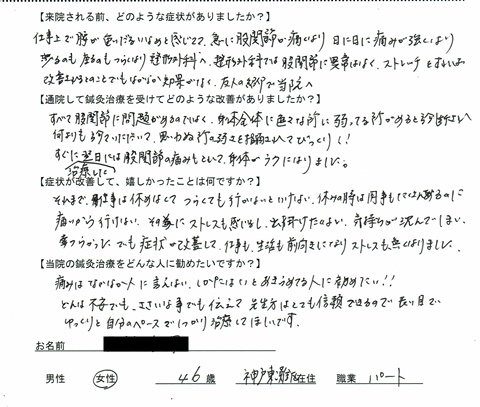 【来院される前、どのような症状がありましたか？】
仕事上で腰が重いだるいなぁと感じてて、急に股関節が痛くなり 日に日に痛みが強くなり
歩くのも 座るのもつらくなり 整形外科へ。整形外科では股関節に異常はなく、ストレッチをすれば
改善するとのことでもなかなか効果がなく、友人の紹介で当院へ
【通院して鍼灸治療を受けてどのような改善がありましたか？】
すべて股関節に問題があるのではなく、身体全体に色々な所に弱ってる所があると診断され
何よりも診ていただいて、思わぬ所の弱さを指摘されてびっくり！
すぐに翌日には股関節の痛みもとれて、身体がラクになりました。
治療して
【症状が改善して、嬉しかったことは何ですか？】
それまで、仕事は休めなくて つらくても行かないといけない。休みの時は用事もたくさんあるのに
痛いから行けない。その為に ストレスも感じるし、出掛けたいのに、気持ちが沈んでしまい、
辛うつらい。でも症状が改善して、仕事も、生活も前向きになり ストレスも無くなりました。
【当院の鍼灸治療をどんな人に勧めたいですか？】
痛みはなかなか人に言えない、しかたないとあきらめてる人に勧めたい！！
どんな不安でも、ささいな事でも伝えて 先生方はとても信頼できるので 長い目で
ゆっくりと自分のペースでしっかり治療してほしいです。
お名前
男性 女性 46歳 神戸東灘区在住 職業 パート